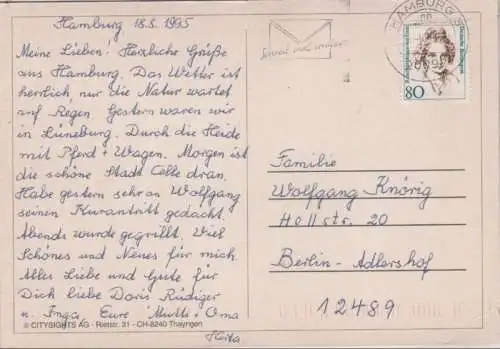 Hamburg 18.5.1995
Meine Lieben! Herzliche Grüße
aus Hamburg. Das Wetter ist
herrlich, nur die Natur wartet
auf Regen. Gestern waren wir
in Lüneburg. Durch die Heide
mit Pferd + Wagen. Morgen ist
die schöne Stadt Celle dran.
Habe gestern sehr an Wolfgang
seinen Kurantritt gedacht.
Abends wurde gegrillt. Viel
Schönes und Neues für mich.
Alles Liebe und Gute für
Dich liebe Doris, Rüdiger
u. Inga, Eure "Mutti" Oma
Herta
© CITYSIGHTS AG - Rietstr. 31 - CH-8240 Thayngen
HAMBURG
80
Familie
Wolfgang Knörig
Hollstr. 20
Berlin-Adlershof
12489